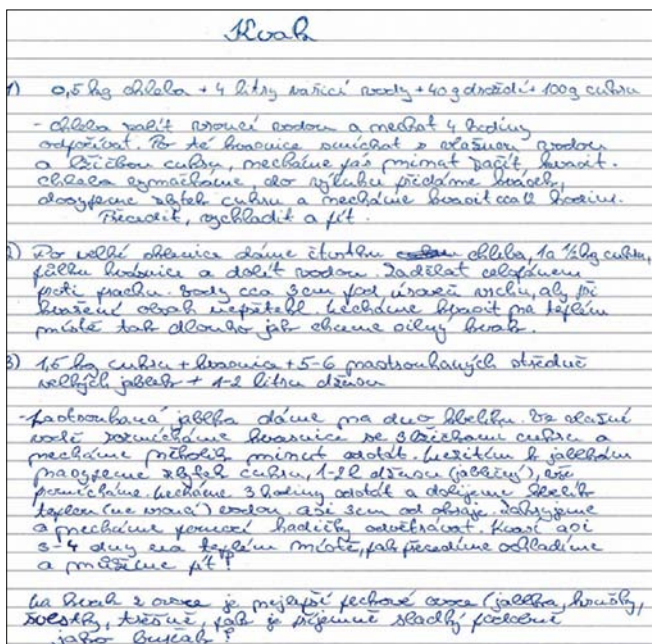 Kvak
1) 0,5 kg chleba + 4 litry vařící vody + 40 g droždí + 100g cukru
- chleba zalít vroucí vodou a nechat 4 hodiny
odpočívat. Po té kvasnice smíchat s vlažnou vodou
a lžičkou cukru, necháme pár minut začít kvasit.
chleba vymačkáme do výluhu přidáme kvásek,
dosypeme zbytek cukru a necháme kvasit cca 12 hodin.
Přecedit, vychladit a pít.
2) Do velké sklenice dáme čtvrtku chleba, 1a 1/2 kg cukru,
půlku kvasnice a dolít vodou. Zadělat celofánem
proti prachu. Vody cca 3cm pod úroveň vrchu, aby při
kvašení obsah nepřetekl. Necháme kvasit na teplém
místě tak dlouho jak chceme silný kvak.
3) 1,5 kg cukru + kvasnice + 5-6 nastrouhaných středně
velkých jablek + 1-2 litru džusu
- Nastrouhaná jablka dáme na dno kbelíku. Ve vlažné
vodě rozmícháme kvasnice se 3 lžičkami cukru a
necháme několik minut odstát. Mezitím k jablkům
nasypeme zbytek cukru, 1-2 l džusu (jablečný), vše
pomícháme. Necháme 3 hodiny odstát a dolijeme kbelík
teplou (ne vroucí) vodou asi 3cm od okraje. Zakryjeme
a necháme pomocí hadičky odvětrávat. Kvasí asi
3-4 dny na teplém místě, pak přecedíme ochladíme
a můžeme pít!
Na kvak z ovoce je nejlepší peckové ovoce (jablka, hrušky,
švestky, třešně, pak je příjemně sladký podobně
jako burčák!